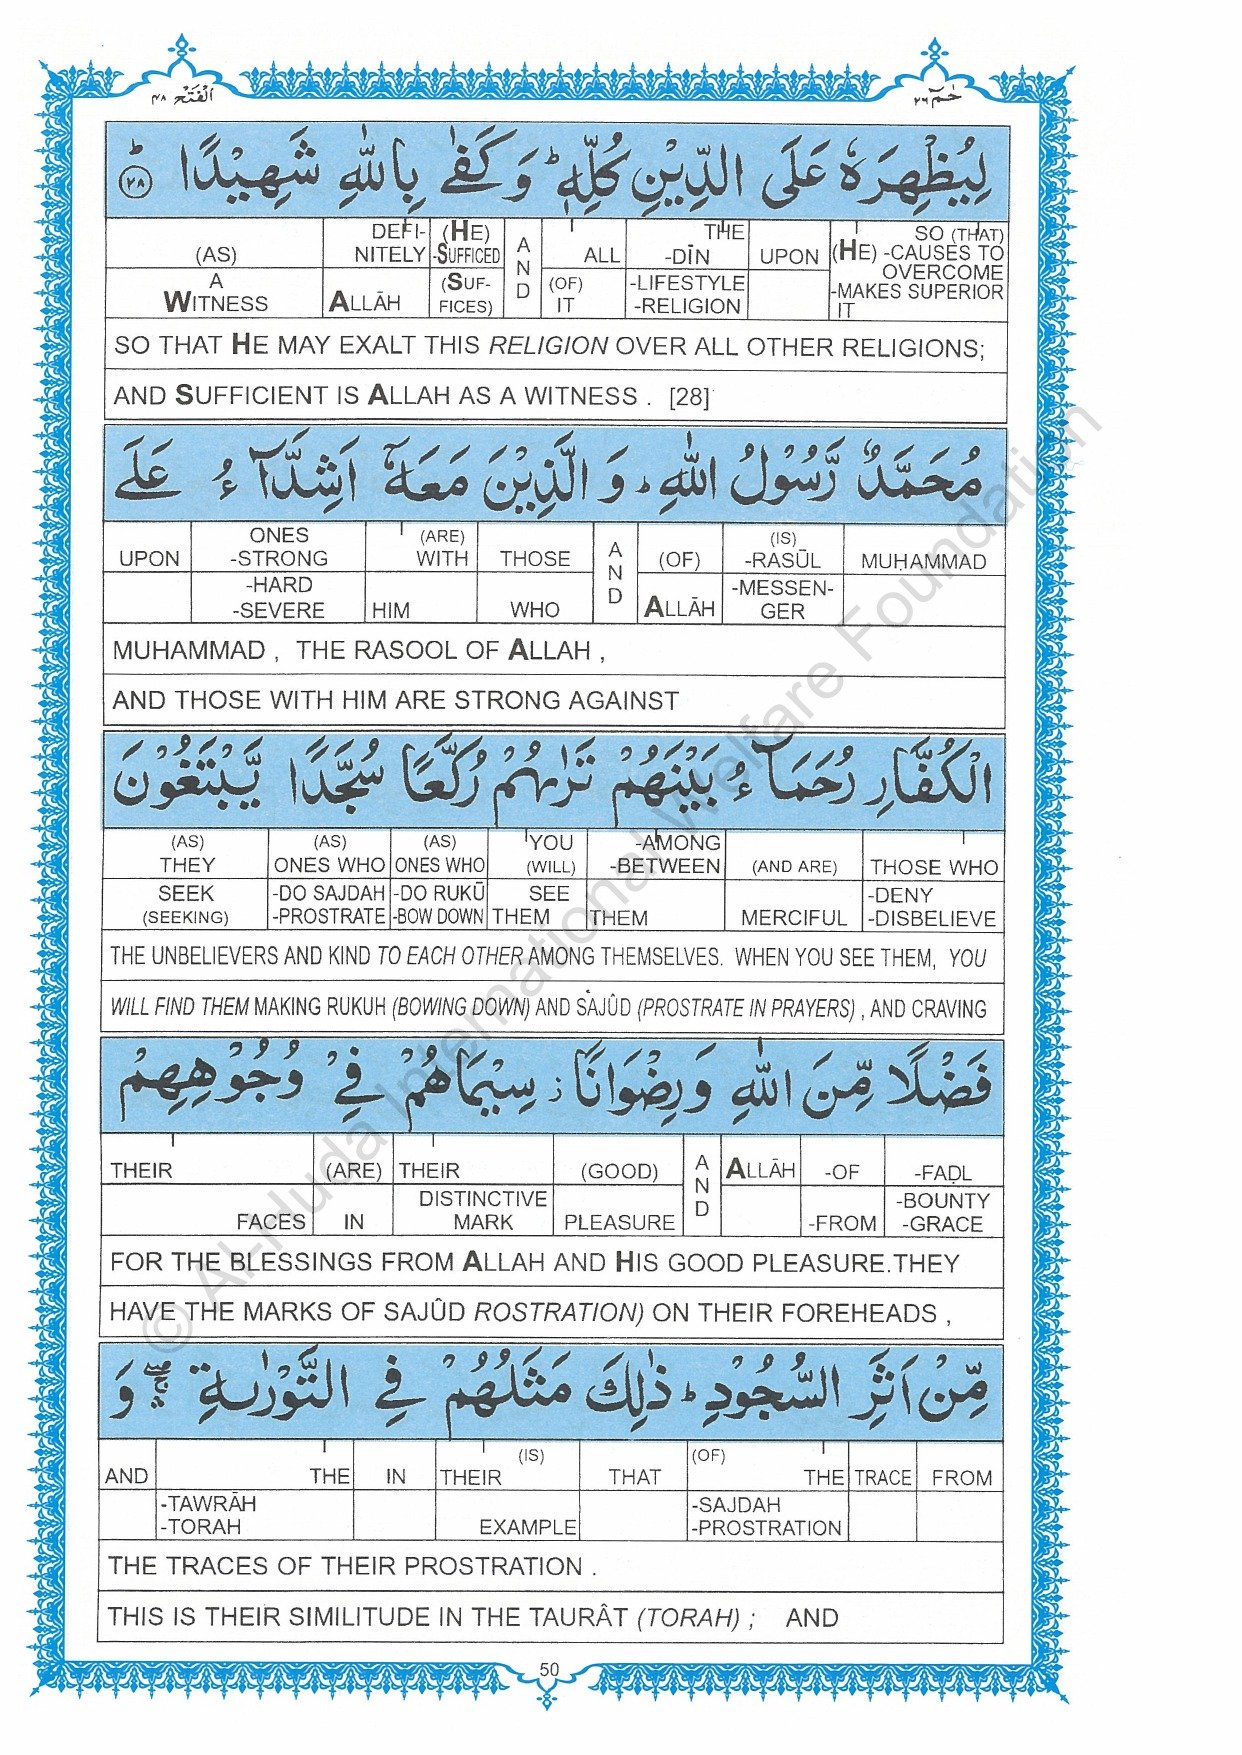 الفتح ٤٨
حٰمٓ ٢٦
لِيُظْهِرَهٗ عَلَى الدِّيْنِ كُلِّهٖ ؕ وَ كَفٰى بِاللّٰهِ شَهِيْدًا ؕ ﴿٢٨﴾
(AS) DEFI- (HE) A ALL THE UPON SO (THAT)
NITELY -SUFFICED N -DĪN (HE) -CAUSES TO
OVERCOME
A (SUF- D (OF) -LIFESTYLE -MAKES SUPERIOR
WITNESS ALLĀH FICES) IT -RELIGION IT
SO THAT HE MAY EXALT THIS RELIGION OVER ALL OTHER RELIGIONS;
AND SUFFICIENT IS ALLAH AS A WITNESS . [28]
مُحَمَّدٌ رَّسُوْلُ اللّٰهِ ؕ وَ الَّذِيْنَ مَعَهٗۤ اَشِدَّآءُ عَلَى
ONES (ARE) A (IS)
UPON -STRONG WITH THOSE N (OF) -RASŪL MUHAMMAD
-HARD D -MESSEN-
-SEVERE HIM WHO ALLĀH GER
MUHAMMAD , THE RASOOL OF ALLAH ,
AND THOSE WITH HIM ARE STRONG AGAINST
الْكُفَّارِ رُحَمَآءُ بَيْنَهُمْ تَرٰىهُمْ رُكَّعًا سُجَّدًا يَّبْتَغُوْنَ
(AS) (AS) (AS) YOU -AMONG
THEY ONES WHO ONES WHO (WILL) -BETWEEN (AND ARE) THOSE WHO
SEEK -DO SAJDAH -DO RUKŪ SEE -DENY
(SEEKING) -PROSTRATE -BOW DOWN THEM THEM MERCIFUL -DISBELIEVE
THE UNBELIEVERS AND KIND TO EACH OTHER AMONG THEMSELVES. WHEN YOU SEE THEM, YOU
WILL FIND THEM MAKING RUKUH (BOWING DOWN) AND SAJÛD (PROSTRATE IN PRAYERS) , AND CRAVING
فَضْلًا مِّنَ اللّٰهِ وَ رِضْوَانًا ؗ سِيْمَاهُمْ فِيْ وُجُوْهِهِمْ
THEIR (ARE) THEIR (GOOD) A ALLĀH -OF -FAḌL
DISTINCTIVE N -BOUNTY
FACES IN MARK PLEASURE D -FROM -GRACE
FOR THE BLESSINGS FROM ALLAH AND HIS GOOD PLEASURE.THEY
HAVE THE MARKS OF SAJÛD ROSTRATION) ON THEIR FOREHEADS ,
مِّنْ اَثَرِ السُّجُوْدِ ؕ ذٰلِكَ مَثَلُهُمْ فِي التَّوْرٰىةِ ۛۖۚ وَ
(IS) (OF)
AND THE IN THEIR THAT THE TRACE FROM
-TAWRĀH -SAJDAH
-TORAH EXAMPLE -PROSTRATION
THE TRACES OF THEIR PROSTRATION .
THIS IS THEIR SIMILITUDE IN THE TAURÂT (TORAH) ; AND
50
© Al-Huda International Welfare Foundation